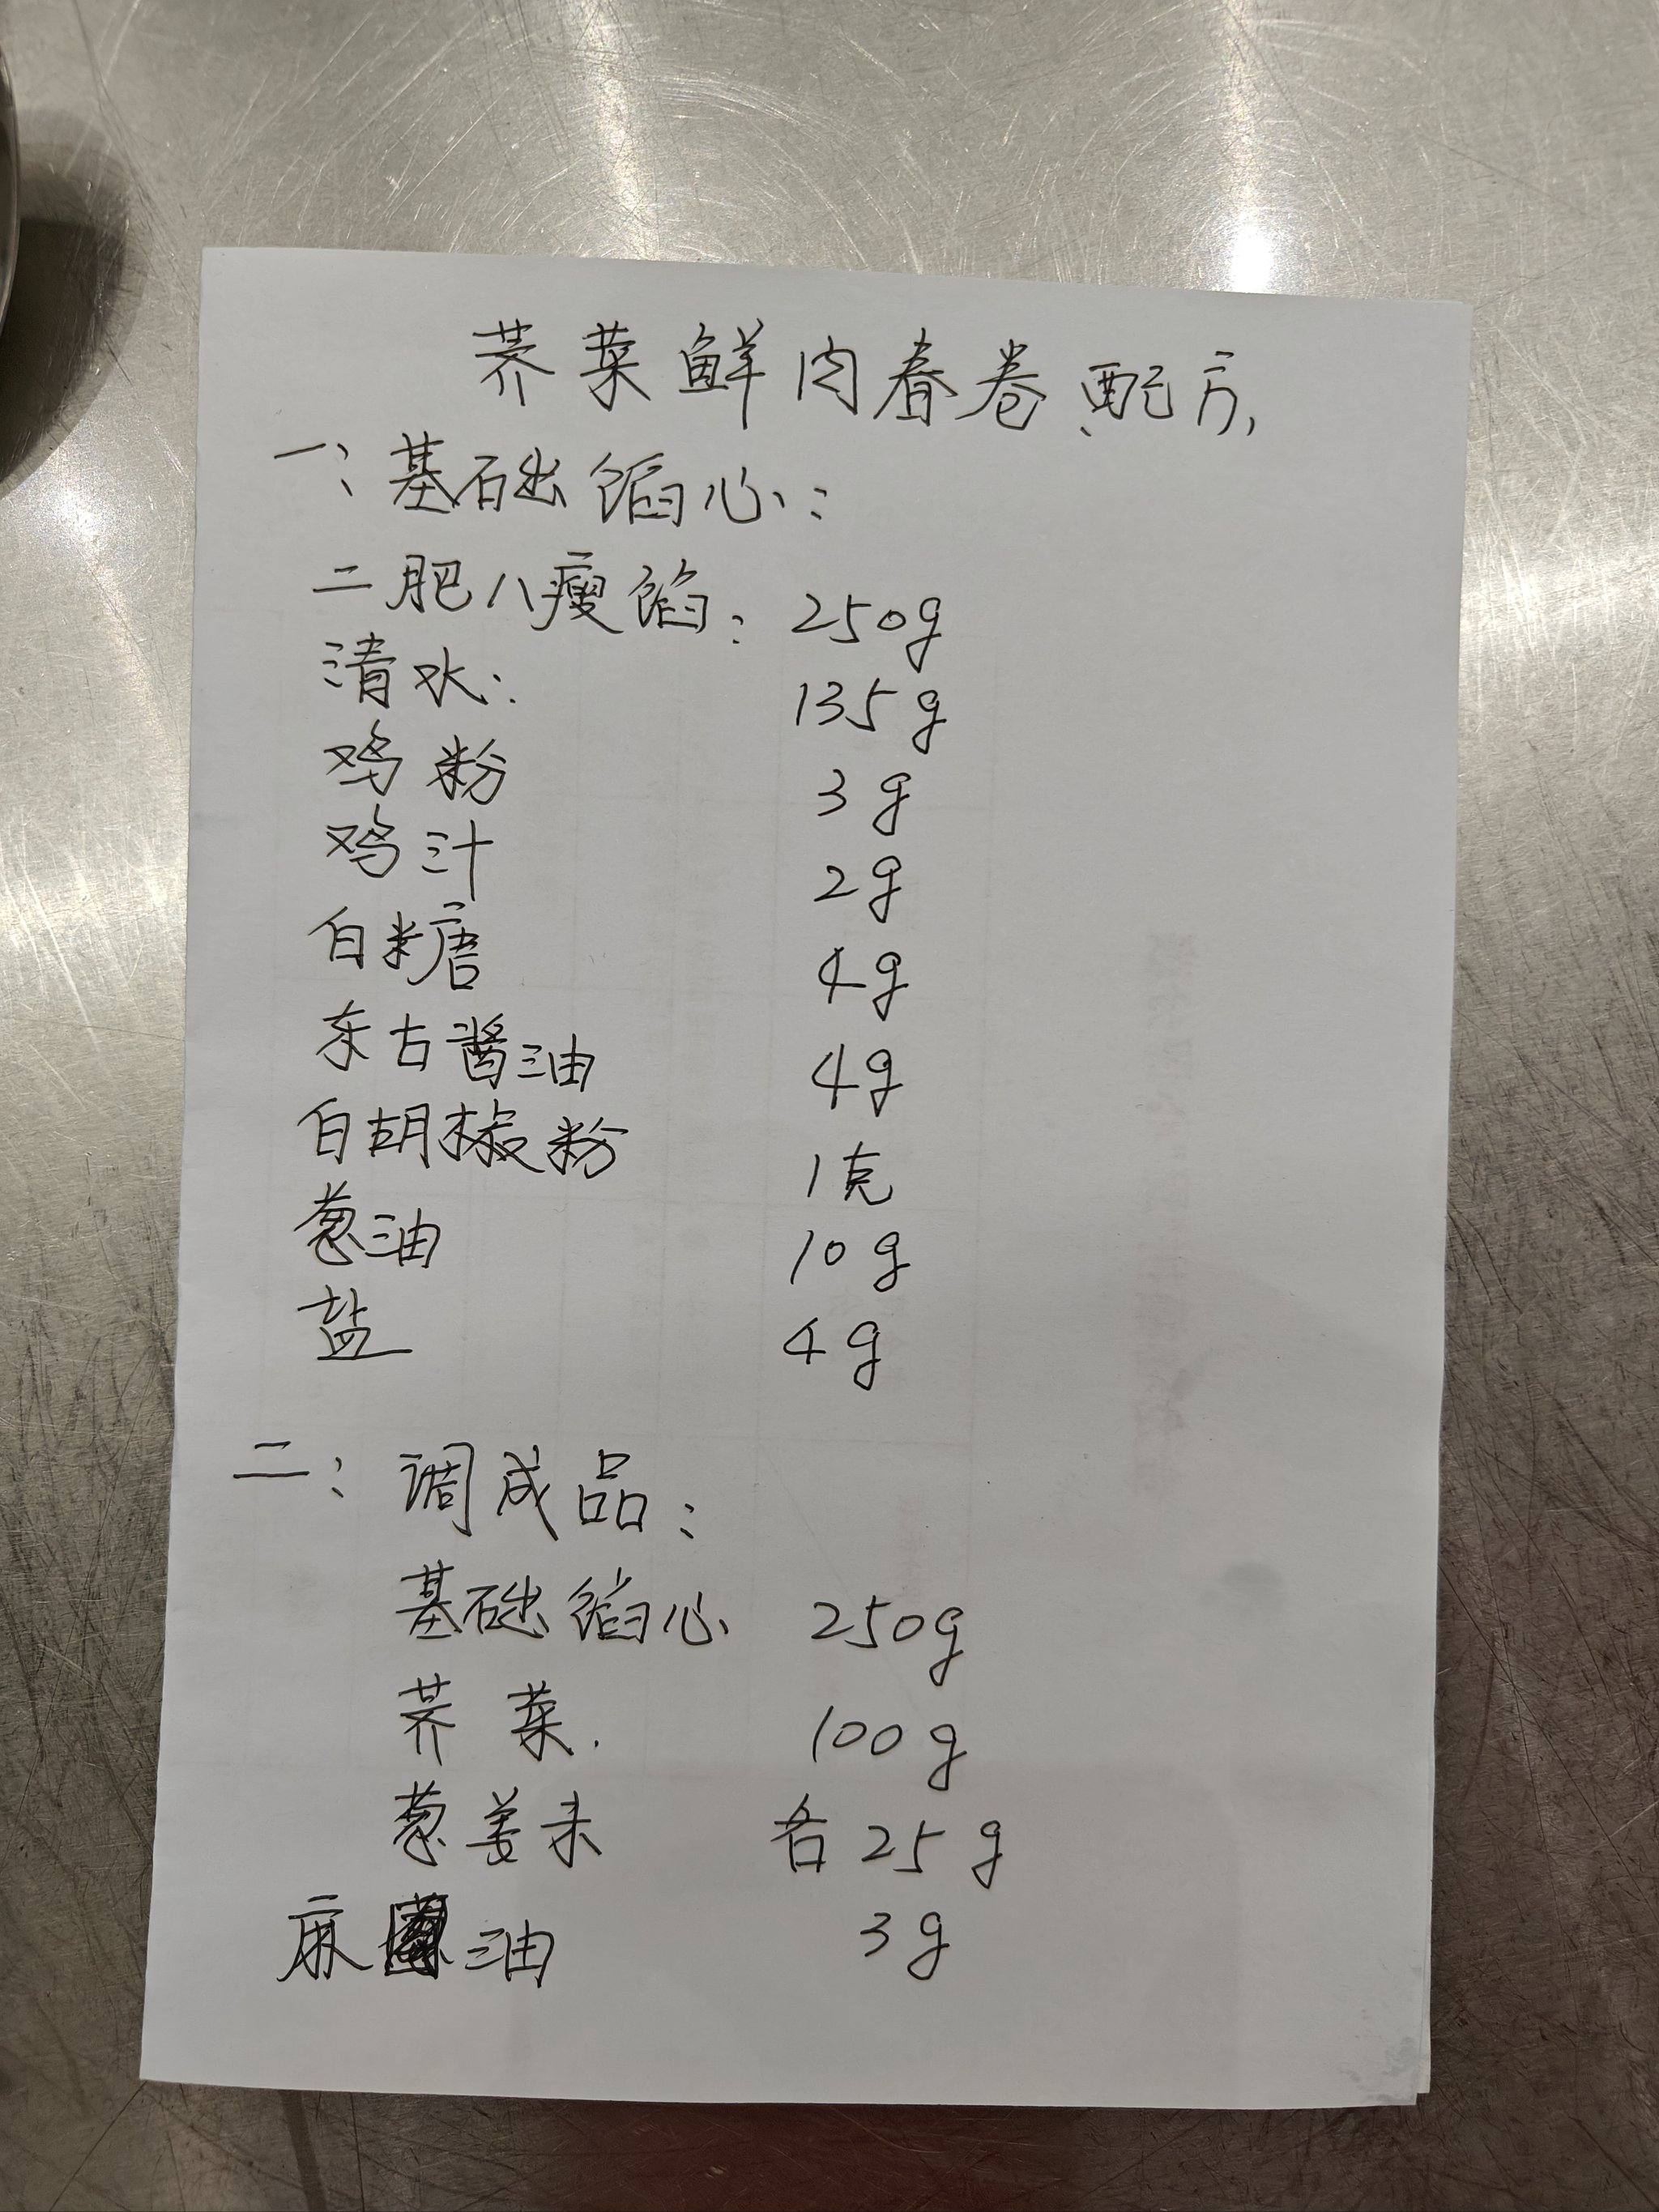 荠菜鲜肉春卷配方
一:基础馅心:
二肥八瘦馅: 250g
清水: 135g
鸡粉 3g
鸡汁 2g
白糖 4g
东古酱油 4g
白胡椒粉 1克
葱油 10g
盐 4g
二:调成品:
基础馅心 250g
荠菜. 100g
葱姜末 各25g
麻油 3g